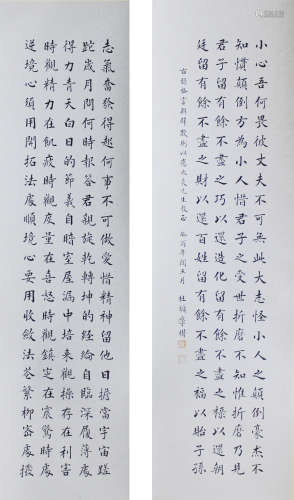 小心吾何畏彼丈夫不可無此大志怪小人之顛倒豪杰不
知慣顛倒方為小人惜君子之受世折磨不知惟折磨乃見
君子留有餘不盡之巧以還造化留有餘不盡之祿以還朝
廷留有餘不盡之財以還百姓留有餘不盡之福以貽子孫
右錄格言聯璧數則以應
志氣奮發得起何事不可做愛惜精神留他日擔當宇宙蹉
跎歲月問何時報答君親旋乾轉坤的經綸自臨深履薄處
得力青天白日的節義自暗室屋漏中培來觀操存在利害
時觀精力在飢疲時觀度量在喜怒時觀鎮定在震驚時處
逆境心須用開拓法處順境心要用收斂法花繁柳密處撥